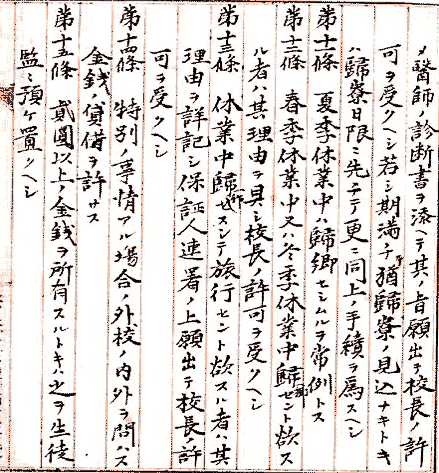 メ醫師ノ診断書ヲ添ヘテ其ノ旨願出テ校長ノ許
可ヲ受クヘシ若シ期満チ猶歸寮ノ見込ナキトキ
ハ歸寮日限ニ先チテ更ニ同上ノ手續ヲ爲スヘシ
第十一條 夏季休業中ハ歸郷セシムルヲ常例トス
第十二條 春季休業中又ハ冬季休業中歸郷セント欲ス
ル者ハ其理由ヲ具シ校長ノ許可ヲ受クヘシ
第十三條 休業中歸郷セスシテ旅行セント欲スル者ハ其
理由ヲ詳記シ保証人連署ノ上願出テ校長ノ許
可ヲ受クヘシ
第十四條 特別ノ事情アル場合ノ外校ノ内外ヲ問ハス
金銭ノ貸借ヲ許サス
第十五條 貳圓以上ノ金銭ヲ所有スルトキハ之ヲ生徒
監ニ預ケ置クヘシ